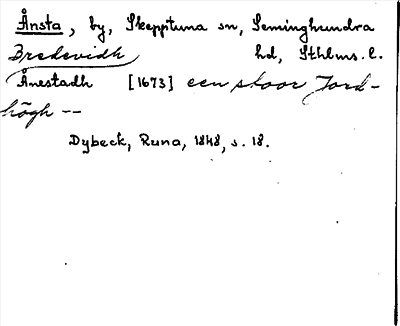 Ånsta, by, Skepptuna sn, Seminghundra
Bredevidh hd, Sthlms. l.
Ånestadh [1673] een stoor Jord-
högh --
Dybeck, Runa, 1848, s. 18.